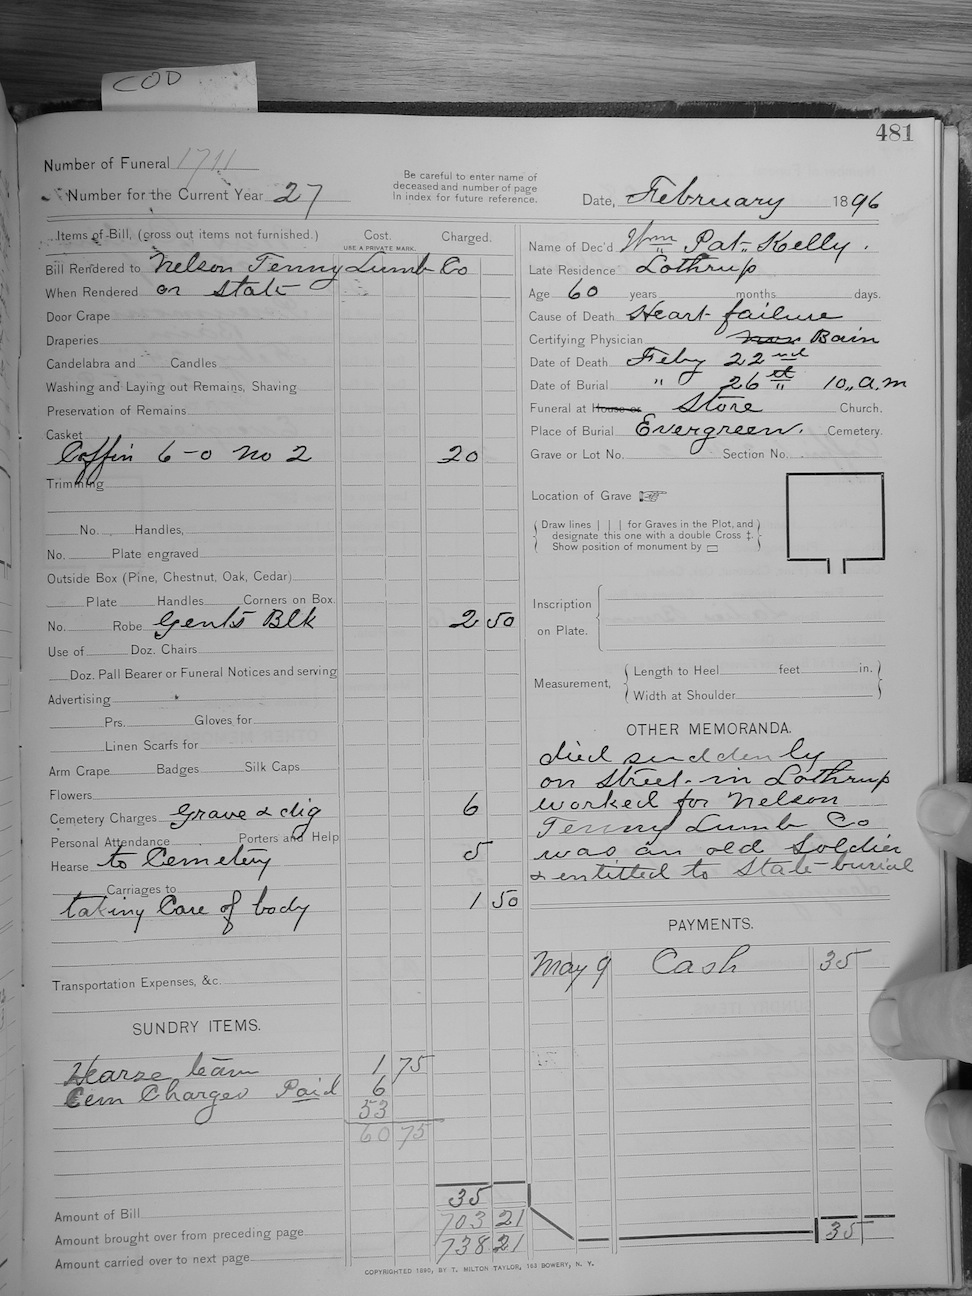 COD
481
Number of Funeral 1711
Number for the Current Year 27
Be careful to enter name of
deceased and number of page
in index for future reference.
Date, February 1896
Items of Bill, (cross out items not furnished.) Cost. Charged.
USE A PRIVATE MARK.
Bill Rendered to Nelson Tenny Lumb Co
When Rendered or State
Door Crape
Draperies
Candelabra and Candles
Washing and Laying out Remains, Shaving
Preservation of Remains
Casket
Coffin 6-0 No 2 20
Trimming
No. Handles,
No. Plate engraved
Outside Box (Pine, Chestnut, Oak, Cedar)
Plate Handles Corners on Box
No. Robe Gents Blk 2 50
Use of Doz. Chairs
Doz. Pall Bearer or Funeral Notices and serving
Advertising
Prs. Gloves for
Linen Scarfs for
Arm Crape Badges Silk Caps
Flowers
Cemetery Charges Grave & dig 6
Personal Attendance Porters and Help
Hearse to Cemetery 5
Carriages to
taking Care of body 1 50
Transportation Expenses, &c.
SUNDRY ITEMS.
Hearse team 1 75
Cem Charges Paid 6
53
60 75
35
Amount of Bill
703 21
Amount brought over from preceding page
738 21
Amount carried over to next page
Name of Dec'd Wm Pat. Kelly.
Late Residence " Lothrup
Age 60 years months days.
Cause of Death Heart failure
Certifying Physician Bain
Date of Death Feby 22nd
Date of Burial " 26th 10 a.m
Funeral at House or Store Church.
Place of Burial Evergreen. Cemetery.
Grave or Lot No. Section No.
Location of Grave ☞
Draw lines | | | for Graves in the Plot, and
designate this one with a double Cross ‡.
Show position of monument by ▭
Inscription
on Plate.
Measurement, Length to Heel feet in.
Width at Shoulder
OTHER MEMORANDA.
died suddenly
on street in Lothrup
worked for Nelson
Tenny Lumb Co
was an old Soldier
& entitled to State burial
PAYMENTS.
May 9 Cash 35
35
COPYRIGHTED 1890, BY T. MILTON TAYLOR, 163 BOWERY, N. Y.